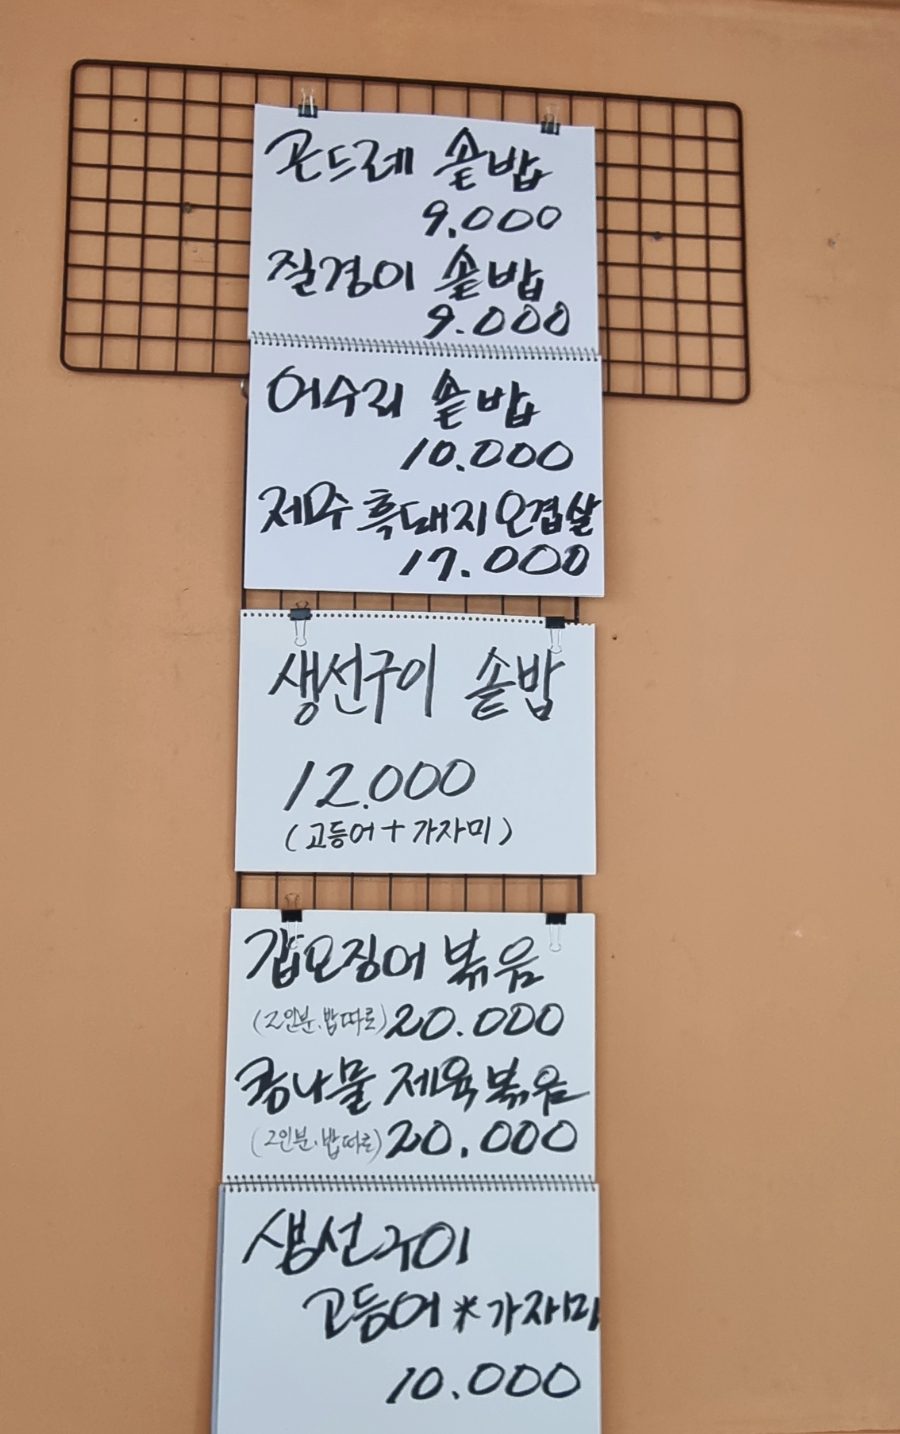 곤드레 솥밥
9.000
질경이 솥밥
9.000
어수리 솥밥
10.000
제주 흑돼지 오겹살
17.000
생선구이 솥밥
12.000
(고등어+가자미)
갑오징어 볶음
(2인분.밥따로) 20.000
콩나물 제육볶음
(2인분.밥따로) 20.000
생선구이
고등어*가자미
10.000